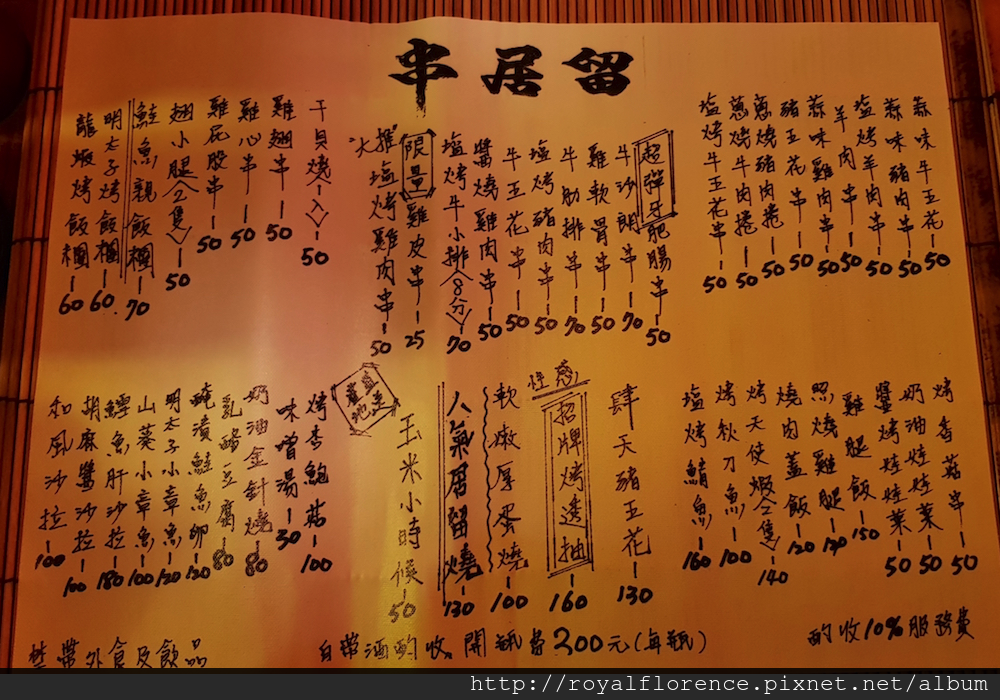 串居留
蒜味牛玉花—50
蒜味豬肉串—50
塩烤羊肉串—50
羊肉串—50
蒜味雞肉串—50
豬玉花串—50
蔥燒豬肉捲—50
蔥烤牛肉捲—50
塩烤牛玉花串—50
超彈牙肥腸串—50
牛沙朗串—70
雞軟骨串—50
牛肋排串—70
塩烤豬肉串—50
牛玉花串—50
醬燒雞肉串—50
塩烤牛小排(8分)—70
限量雞皮串—25
"火推"塩烤雞肉串—50
干貝燒(一入)—50
雞翅串—50
雞心串—50
雞屁股串—50
翅小腿(2隻)—50
鮭魚親飯糰—70
明太子烤飯糰—60
龍蝦烤飯糰—60
烤香菇串—50
奶油娃娃菜—50
醬烤娃娃菜—50
雞腿飯—150
照燒雞腿—130
燒肉蓋飯—120
烤天使蝦(2隻)—140
烤秋刀魚—100
塩烤鯖魚—160
肆天豬玉花—130
性感
招牌烤透抽—160
軟嫩厚蛋燒—100
人氣居留燒—130
玉米小時候—50
烤杏鮑菇—100
味噌湯—30
奶油金針燒—80
乳酪豆腐—80
醃漬鮭魚卵—130
明太子小章魚—120
山葵小章魚—100
鱈魚肝沙拉—180
胡麻醬沙拉—100
和風沙拉—100
禁帶外食及飲品
自帶酒酌收開瓶費200元(每瓶)
酌收10%服務費
http://royalflorence.pixnet.net/album